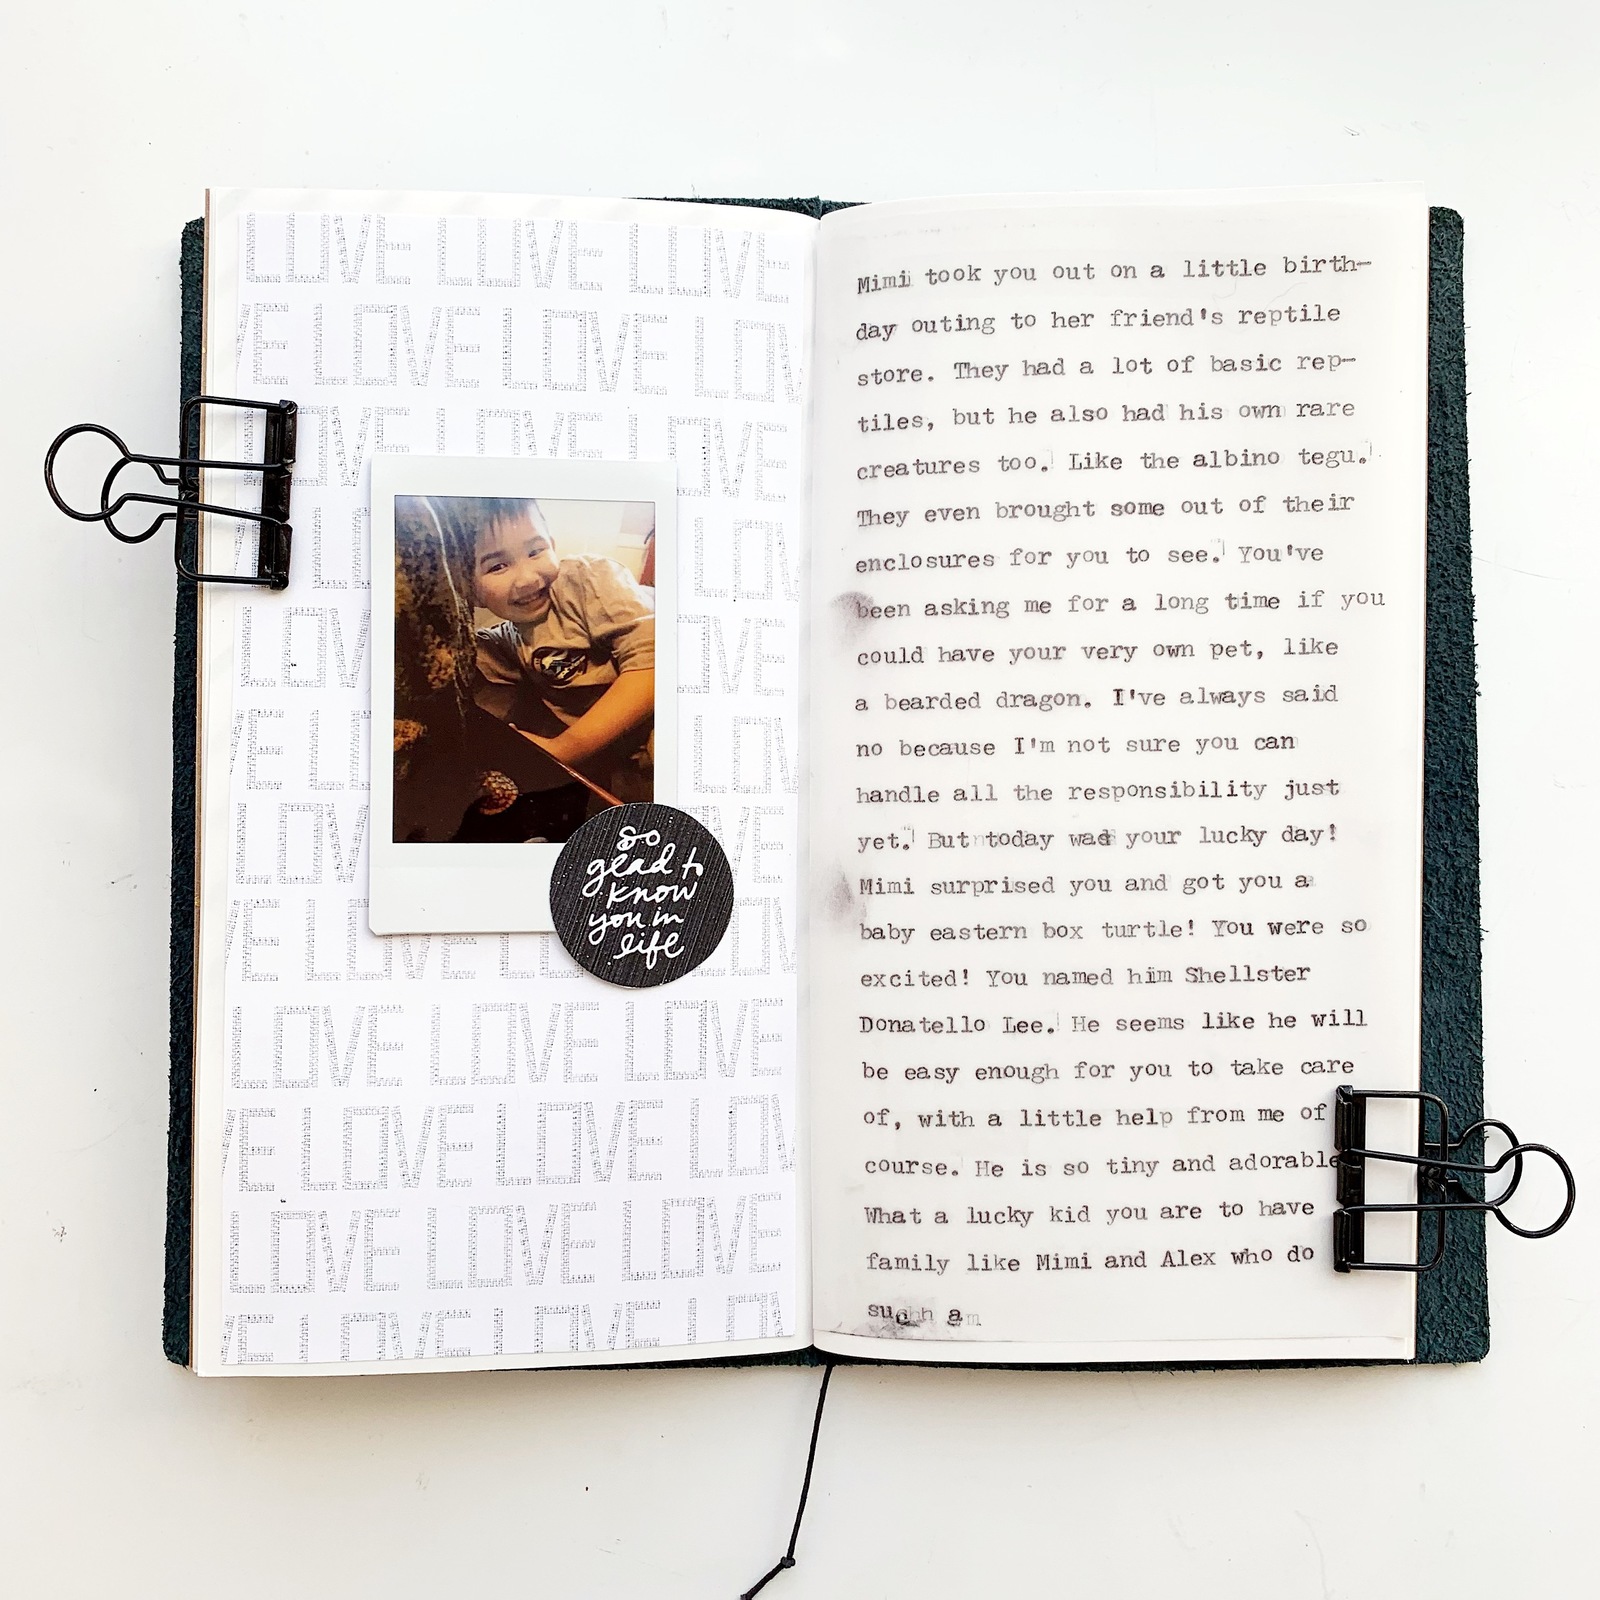 LOVE LOVE LOVE
VE LOVE LOVE LOV
LOVE LOVE LOVE
LOV
LOV LOVE
VE LO LOV
LOV VE
VE LOVE LOV
LOVE LOVE LOVE
VE LOVE LOVE LOV
LOVE LOVE LOVE
VE LOVE LOVE LOV
so
glad to
know
you in
life
Mimi took you out on a little birth-
day outing to her friend's reptile
store. They had a lot of basic rep-
tiles, but he also had his own rare
creatures too. Like the albino tegu.
They even brought some out of their
enclosures for you to see. You've
been asking me for a long time if you
could have your very own pet, like
a bearded dragon. I've always said
no because I'm not sure you can
handle all the responsibility just
yet. But today was your lucky day!
Mimi surprised you and got you a
baby eastern box turtle! You were so
excited! You named him Shellster
Donatello Lee. He seems like he will
be easy enough for you to take care
of, with a little help from me of
course. He is so tiny and adorable
What a lucky kid you are to have
family like Mimi and Alex who do